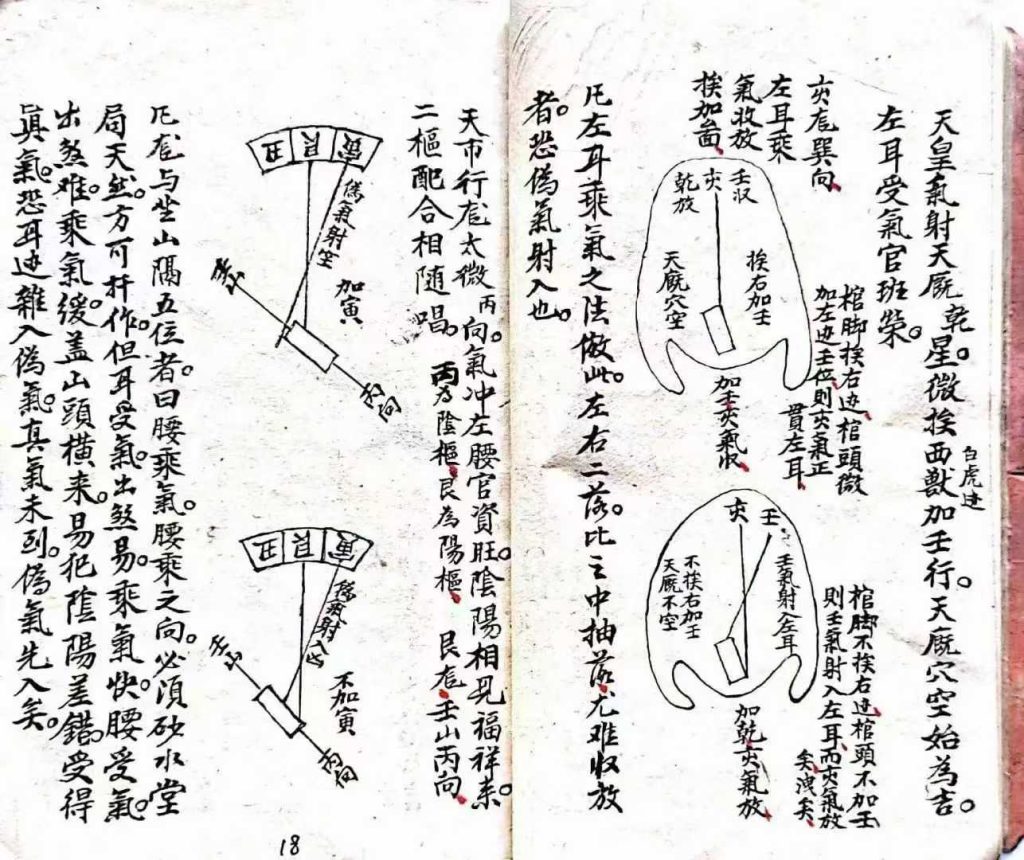 天皇氣射天厩乾星。微挨西獸加壬行。天厩穴空始為吉。
白虎边
左耳受氣官班榮。
亥龙巽向
左耳乘
氣收放
挨加啚
壬収
亥
乾放
挨右加壬
天厩穴空
加壬亥氣収
棺脚挨右边棺頭微
加左边壬位則亥氣正
貫左耳
壬
亥
壬氣射入左耳
不挨右加壬
天厩不空
加乾亥氣放
棺脚不挨右边棺頭不加壬
則壬氣射入左耳而亥氣放
矣洩矣
凡左耳乘氣之法倣此。左右二落。比之中抽落尤难収放
者。恐偽氣射入也。
天市行龙太微丙向。氣冲左腰官資旺。陰陽相見福祥来。
二樞配合相随唱。丙為陰樞艮為陽樞 艮龙壬山丙向
寅
艮
丑
偽氣射空
加寅
壬山
丙向
寅
艮
丑
偽氣射入
不加寅
壬山
丙向
凡龙与坐山隔五位者。曰腰乘氣。腰乘之向。必須砂水堂
局天然。方可扦作。但耳受氣。出煞易。乘氣快。腰受氣。
出煞难。乘氣缓。盖山頭横来。易犯陰陽差錯。受得
真氣。恐耳边雜入偽氣。真氣未到。偽氣先入矣。
18